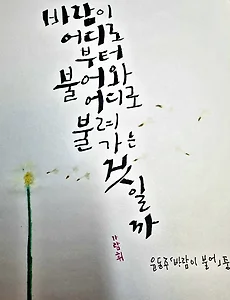 바람이
어디로
부터
불어와
어디로
불려
가는
것
일
까
윤동주「바람이 불어」